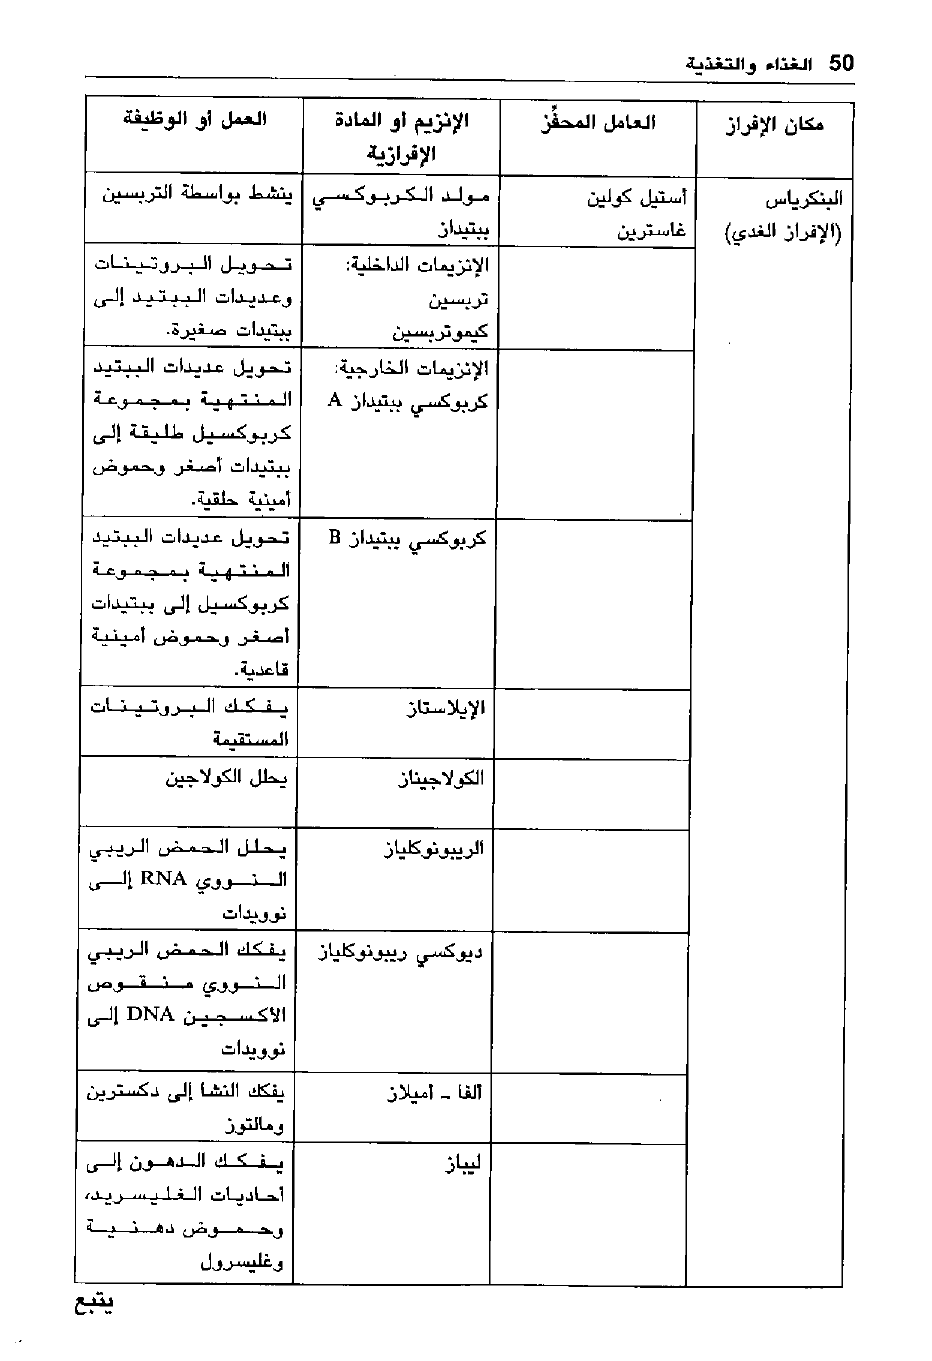 50 الغذاء والتغذية
مكان الإفراز العامل المحفِّز الإنزيم أو المادة العمل أو الوظيفة
الإفرازية
البنكرياس أستيل كولين مولد الكربوكسي ينشط بواسطة التربسين
(الإفراز الغدي) غاسترين ببتيداز
الإنزيمات الداخلية: تحويل البروتينات
تربسين وعديدات الببتيد إلى
كيموتربسين ببتيدات صغيرة.
الإنزيمات الخارجية: تحويل عديدات الببتيد
كربوكسي ببتيداز A المنتهية بمجموعة
كربوكسيل طليقة إلى
ببتيدات أصغر وحموض
أمينية حلقية.
كربوكسي ببتيداز B تحويل عديدات الببتيد
المنتهية بمجموعة
كربوكسيل إلى ببتيدات
أصغر وحموض أمينية
قاعدية.
الإيلاستاز يفكك البروتينات
المستقيمة
الكولاجيناز يحلل الكولاجين
الريبونوكلياز يحلل الحمض الريبي
النووي RNA إلى
نوويدات
ديوكسي ريبونوكلياز يفكك الحمض الريبي
النووي منقوص
الاكسجين DNA إلى
نوويدات
ألفا - أميلاز يفكك النشا إلى دكسترين
ومالتوز
ليباز يفكك الدهون إلى
أحاديات الغليسريد،
وحموض دهنية
وغليسرول
يتبع